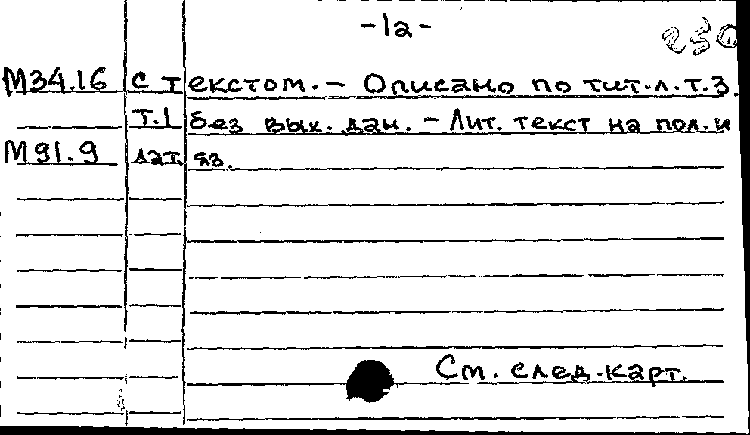 -1а-
250
М34.16 с текстом. - Описано по тит.л.т.3.
т.1 без вых. дан. - Лит. текст на пол. и
М91.9 лат. яз.
См. след. карт.